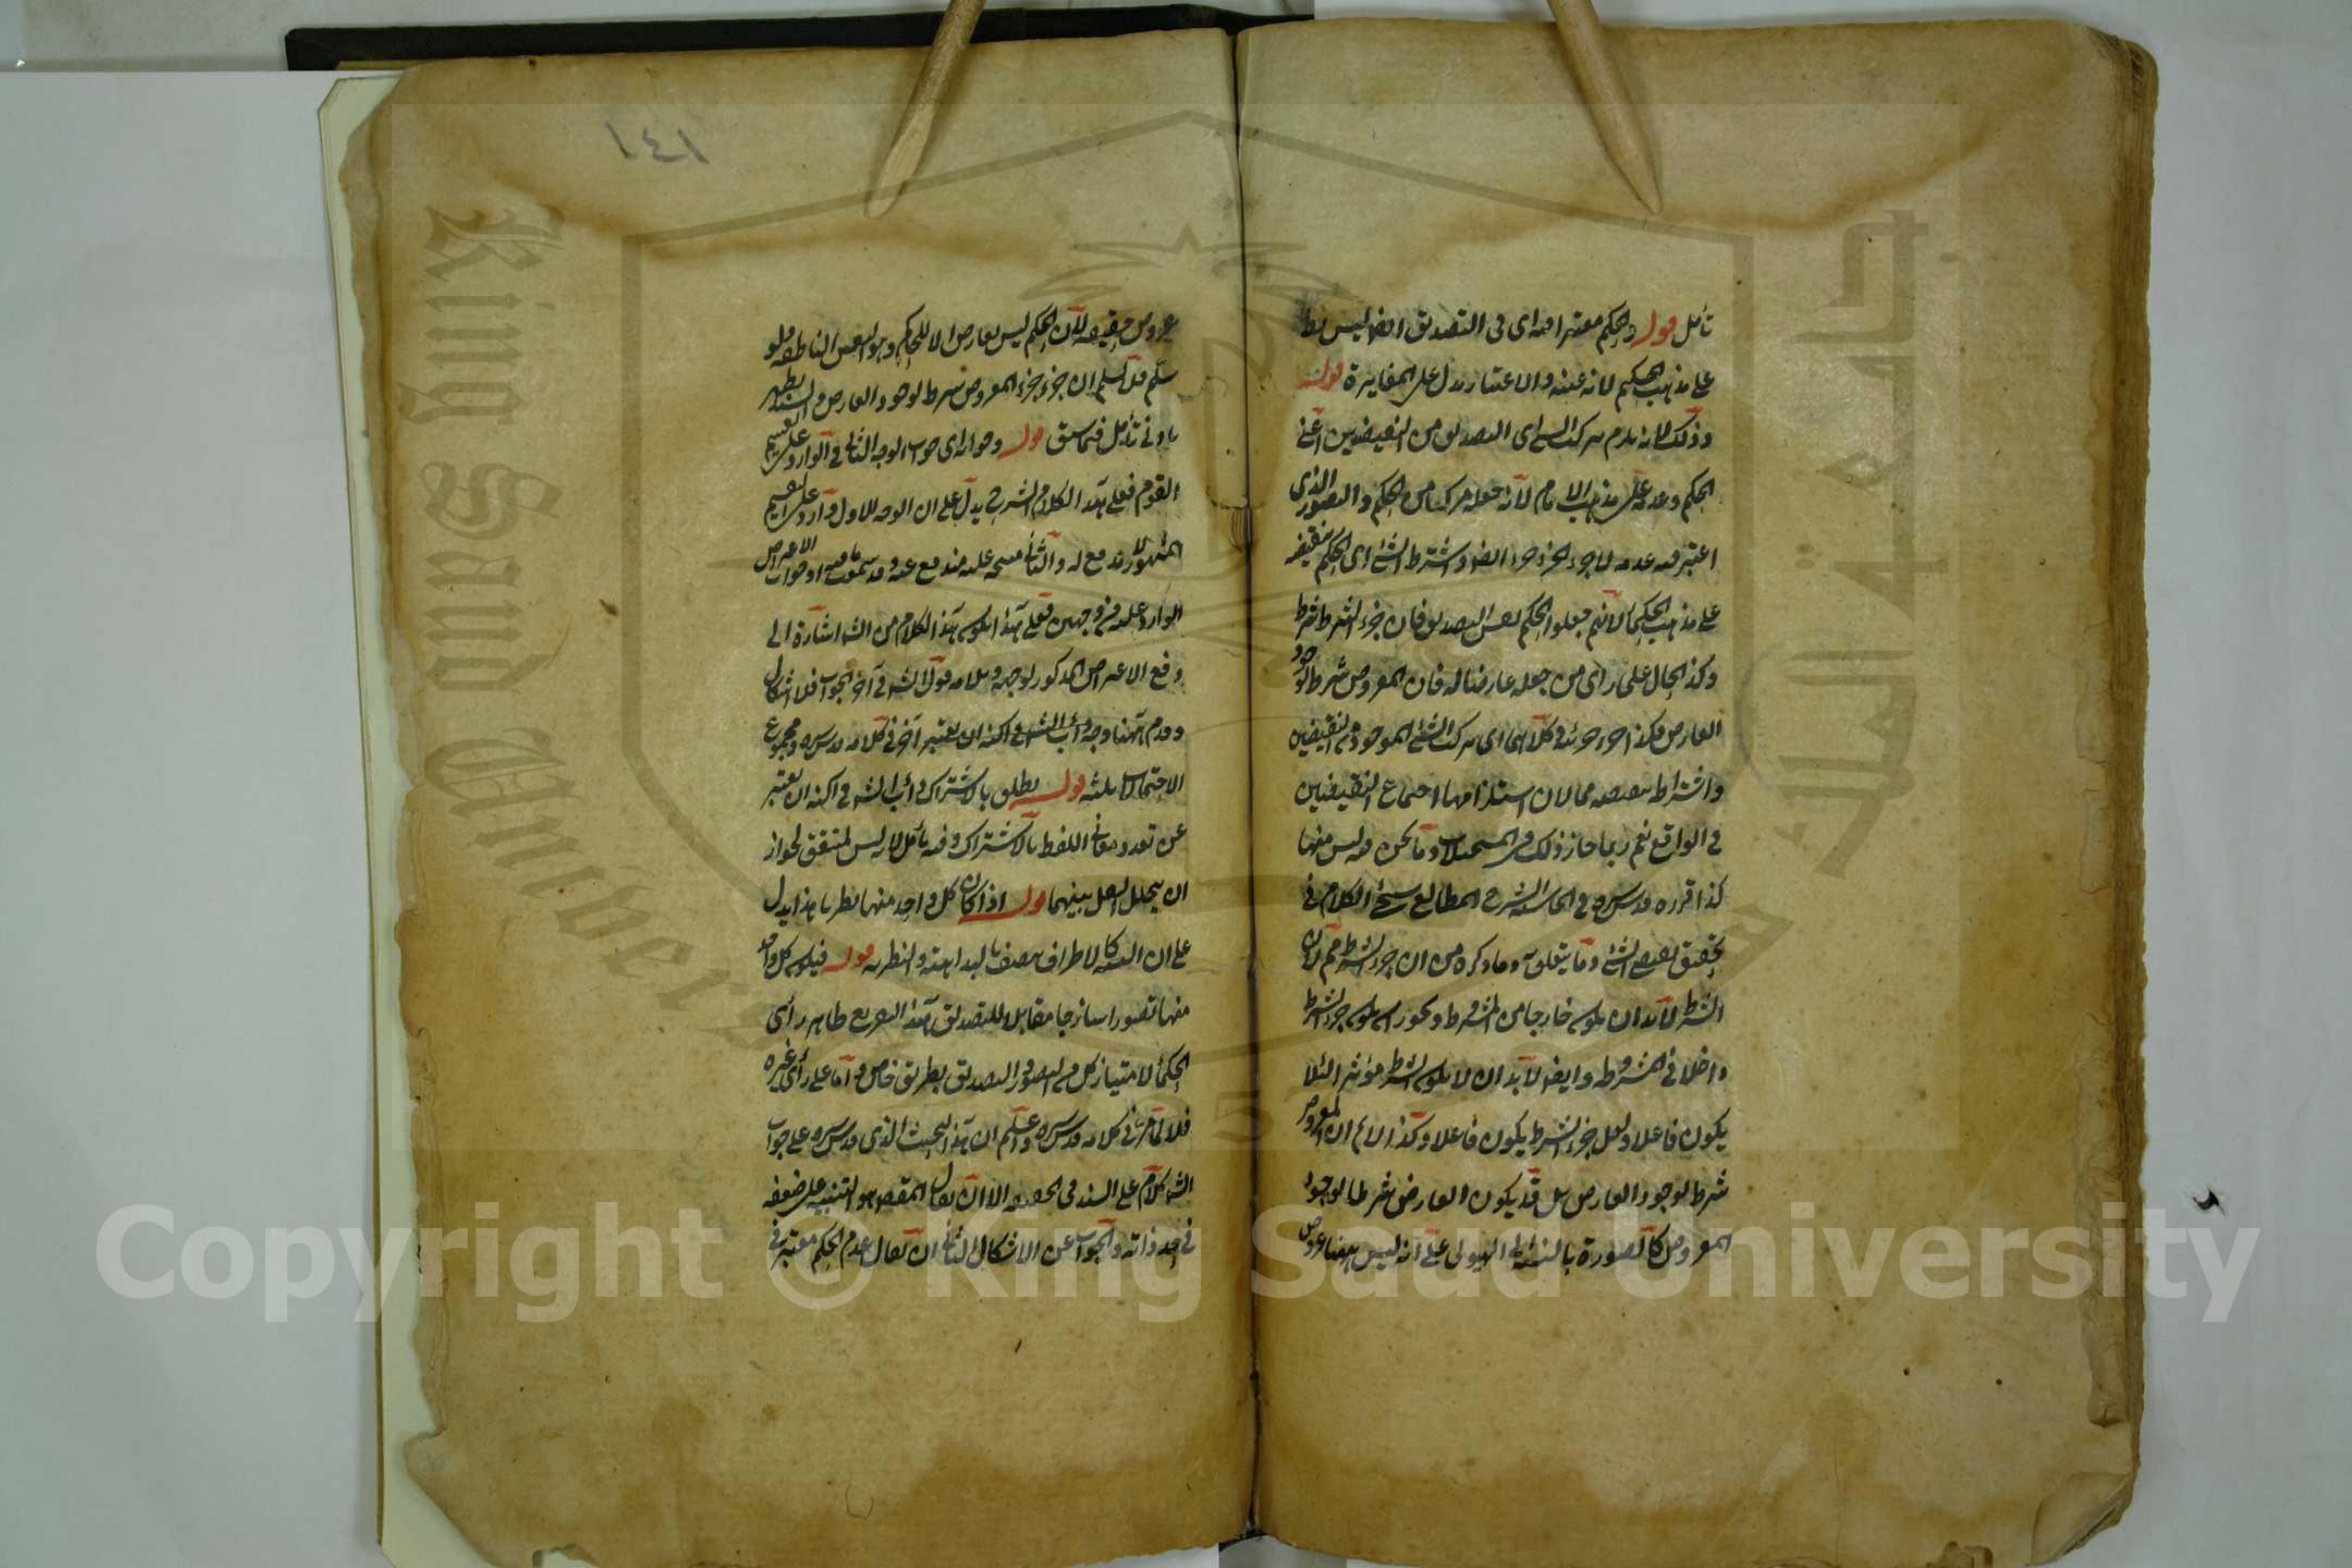 تأمل قوله والحكم معتبر فيه اى فى التصديق ايضا ليس
على مذهب الحكيم لانه عينه والاعتبار يدل على المغايرة قوله
وذلك لانه يلزم تركب الشئ اى التصديق من النقيضين اعنى
الحكم وعدمه على مذهب الامام لانه جعله مركبا من الحكم والتصور الذى
اعتبر فيه عدمه لان جزء الجزء جزء ايضا واشتراط الشئ اى الحكم بنقيضه
على مذهب الحكماء لانهم جعلوا الحكم نفس التصديق فان جزء الشرط شرط
وكذا الحال على رأى من جعله عارضا له فان المعروض شرط لوجود
العارض فكذا جزء جزئه وكلاهما اى تركب الشئ الموجود من النقيضين
واشتراطه بنقيضه محالان لاستلزامهما اجتماع النقيضين
فى الواقع نعم ربما جاز ذلك فى المستحيلات وما نحن فيه ليس منها
كذا قرره قدس سره فى الحاشية لشرح المطالع الكلام فى
تحقيق نقيض الشئ وما يتعلق به وما ذكره من ان جزء الشرط شرط لان
الشرط لابد ان يكون خارجا من المشروط ويجوز ان يكون جزء الشرط
داخلا فى المشروط وايضا لابد ان لا يكون الشرط مؤثرا لئلا
يكون فاعلا ولعل جزء الشرط يكون فاعلا وكذا لانم ان المعروض
شرط لوجود العارض بل قد يكون العارض شرطا لوجود
المعروض كالصورة بالنسبة الى الهيولى على انه ليس ههنا عروض
١٤١
عروض حقيقة لان الحكم ليس بعارض الا للحاكم وهو النفس الناطقة ولو
سلم فلا نسلم ان جزء جزء المعروض شرط لوجود العارض والسند يظهر
بادنى تأمل فيما سبق قوله وجوابه اى جواب الوجه الثانى الوارد على تقسيم
القوم فعلى هذا الكلام الشرح يدل على ان الوجه الاول وارد على التقسيم
المشهور لا مدفع له والثانى عليه مندفع عنه وقد سمعت ما فيه او جواب الاعتراض
الوارد عليه من وجهين فعلى هذا يكون هذا الكلام من الش اشارة الى
دفع الاعتراض المذكور لوجهيه ويلايمه قول الش فى آخر الجواب فلا اشكال
وقدم ههنا وجه الش لكنه ان يعتبر آخر فى كلامه قدس سره ومجموع
الاحتمالات ثلثه قوله يطلق بالاشتراك الش لكنه ان يعتبر
عن تعدد معانى اللفظ بالاشتراك وفيه تأمل لانه ليس لمتفق لجواز
ان يتخلل النقل بينهما قوله اذا كان كل واحد منهما نظريا هذا يدل
على ان النسبة كالاطراف تتصف بالبداهة والنظرية قوله فيكون كل واحد
منهما تصورا ساذجا مقابلا للتصديق هذا التفريع ظاهر رأى
الحكماء لامتياز كل من التصور والتصديق بطريق خاص واما على رأى غيره
فلا لما مر فى كلامه قدس سره واعلم ان هذا البحث الذى قدس سره على جواب
الش كلام على السند فى الحقيقة الا ان يقال المقصود هو التنبيه على ضعفه
فى حد ذاته والجواب عن الاشكال الثانى ان يقال عدم الحكم معتبر فى
Copyright © King Saud University
King Saud University